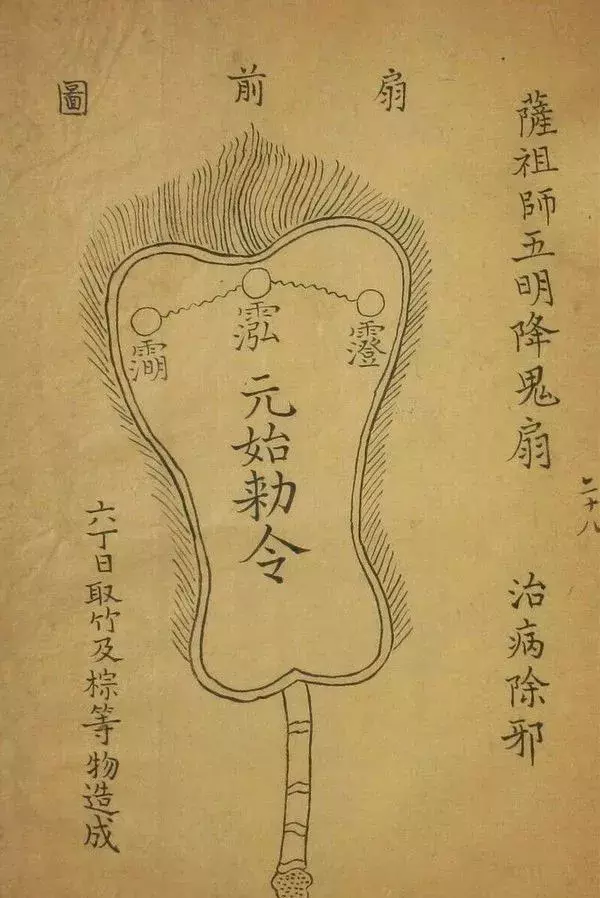 薩祖師五明降鬼扇 治病除邪
二十八
扇前圖
元始勅令
六丁日取竹及棕等物造成